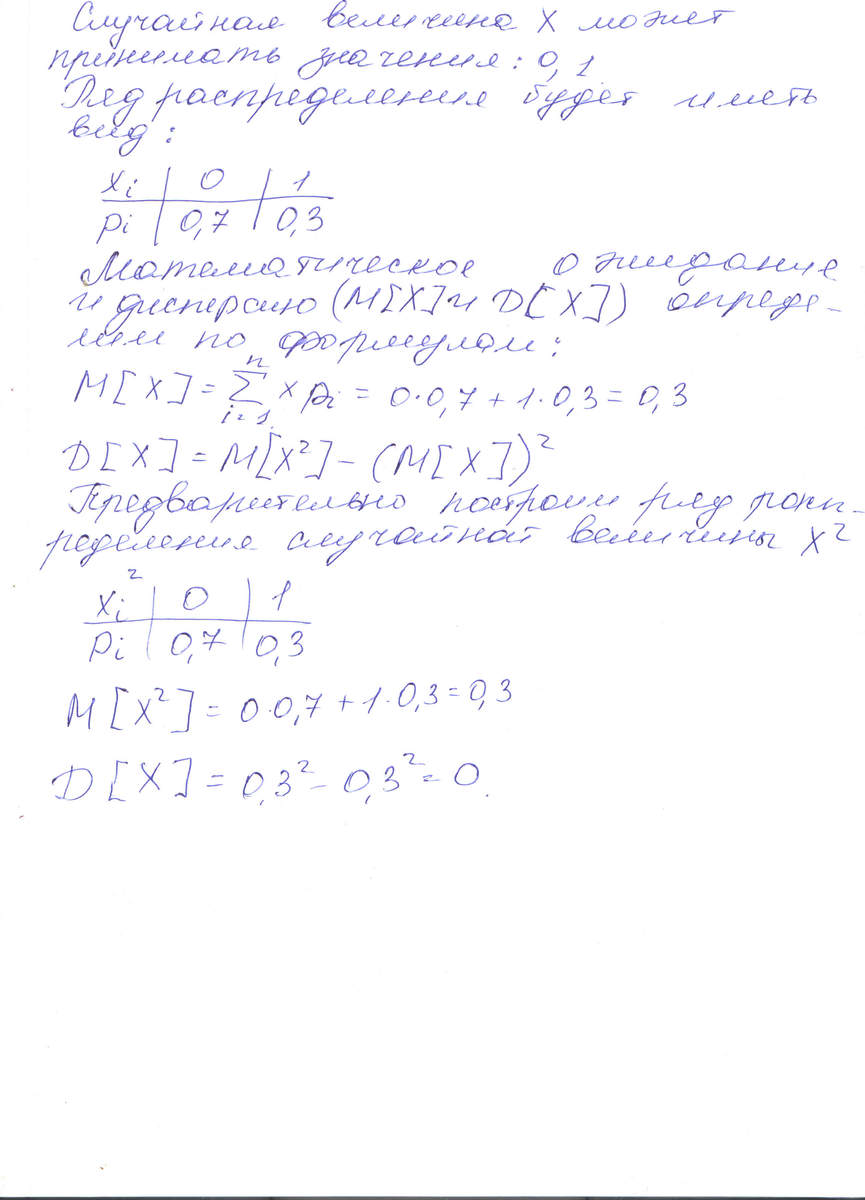 Случайная величина X может
принимать значения: 0, 1
Ряд распределения будет иметь
вид:
xi | 0 | 1
pi | 0,7 | 0,3
Математическое ожидание
и дисперсию (M[X] и D[X]) опреде-
лим по формулам:
M[X] = ∑ⁿᵢ₌₁ x pi = 0·0,7 + 1·0,3 = 0,3
D[X] = M[X²] – (M[X])²
Предварительно построим ряд расп-
ределения случайной величины X²
xi² | 0 | 1
pi | 0,7 | 0,3
M[X²] = 0·0,7 + 1·0,3 = 0,3
D[X] = 0,3² – 0,3² = 0.